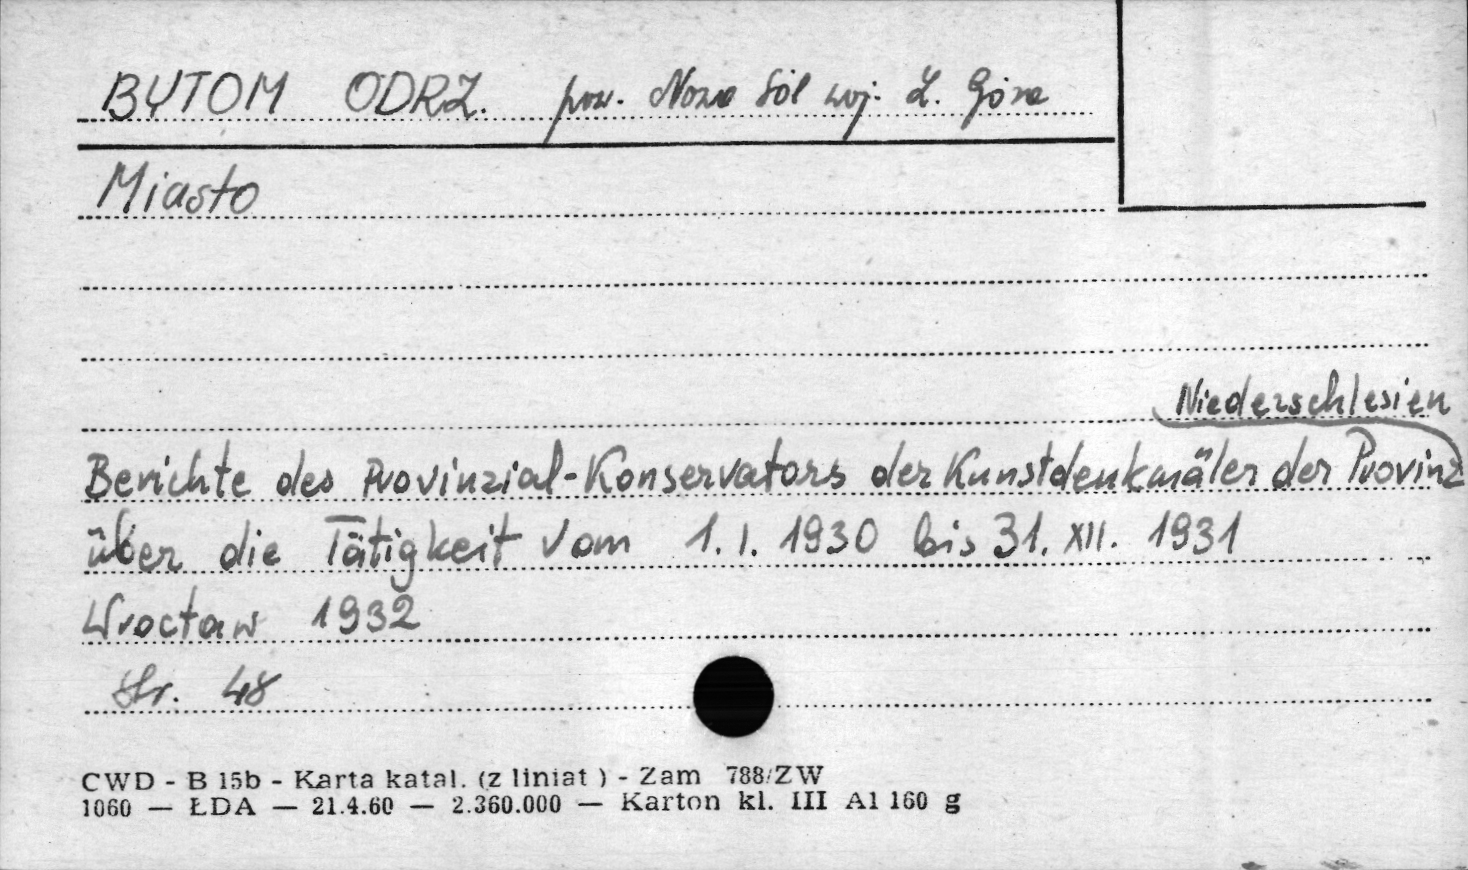 BYTOM ODRZ. pow. Nowa Sól woj. Z. Góra
Miasto
Niederschlesien
Berichte des Provinzial-Konservators der Kunstdenkmäler der Provinz
über die Tätigkeit vom 1. I. 1930 bis 31. XII. 1931
Wrocław 1932
Str. 48
CWD - B 15b - Karta katal. (z liniat ) - Zam 788/ZW
1060 — ŁDA — 21.4.60 — 2.360.000 — Karton kl. III A1 160 g